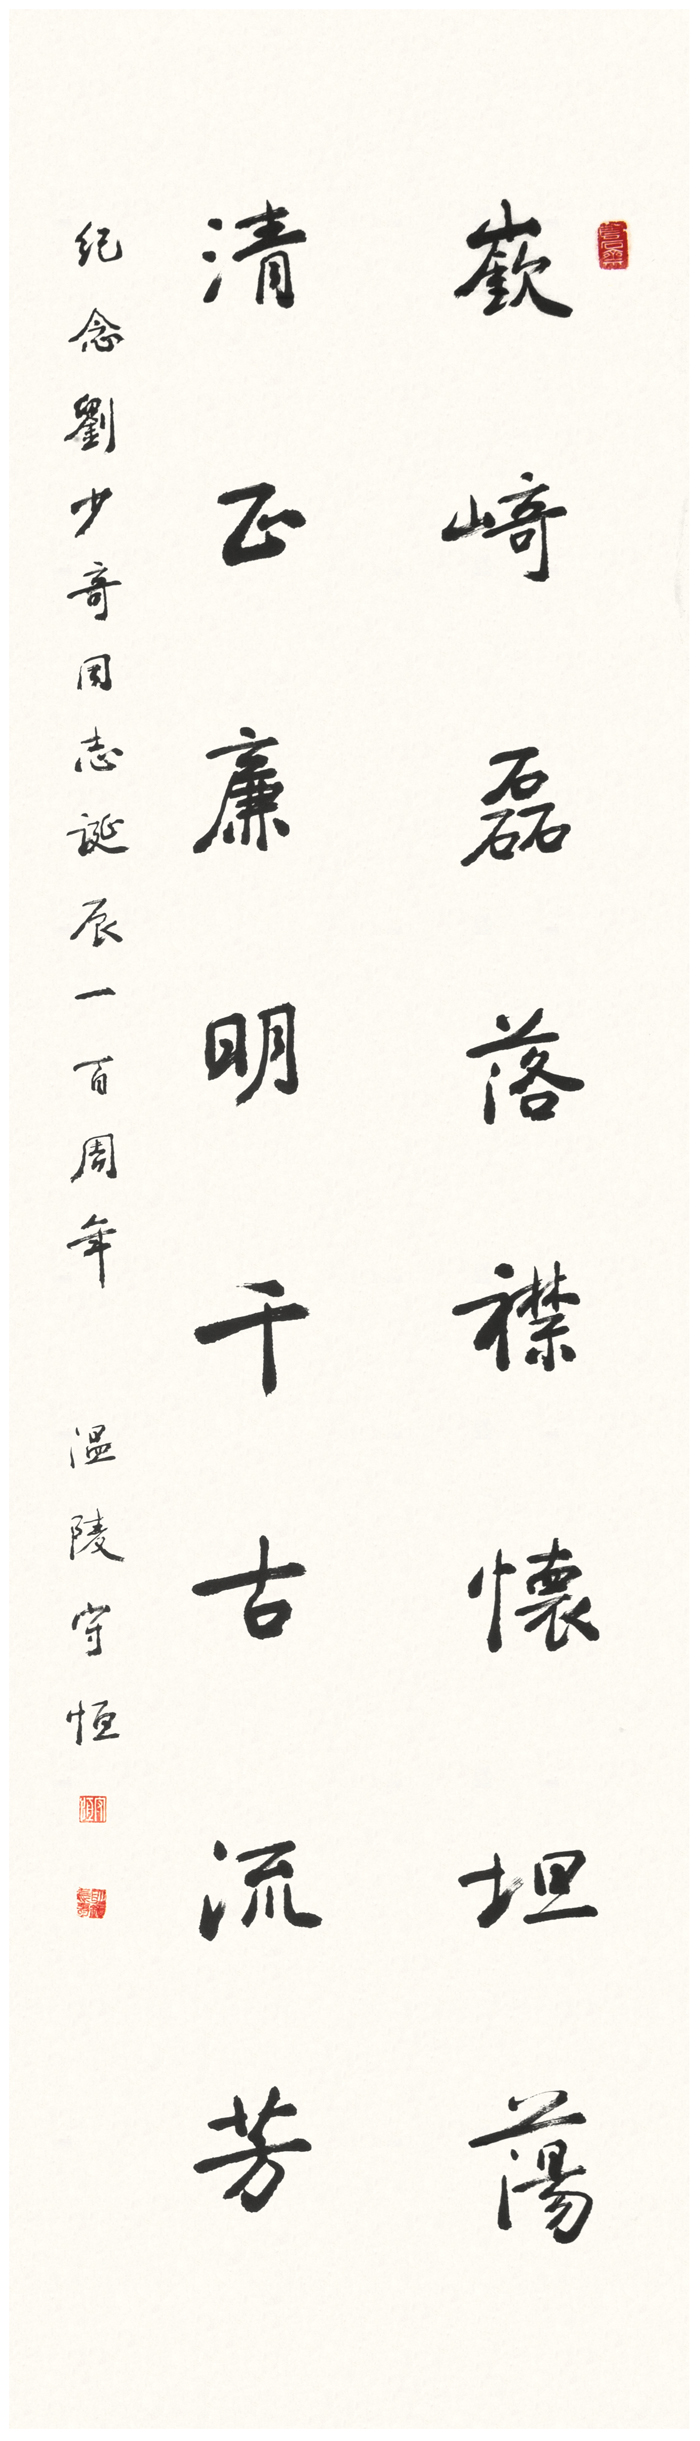 嶔崎磊落襟懷坦蕩
清正廉明千古流芳
纪念劉少奇同志誕辰一百周年 温陵守恒